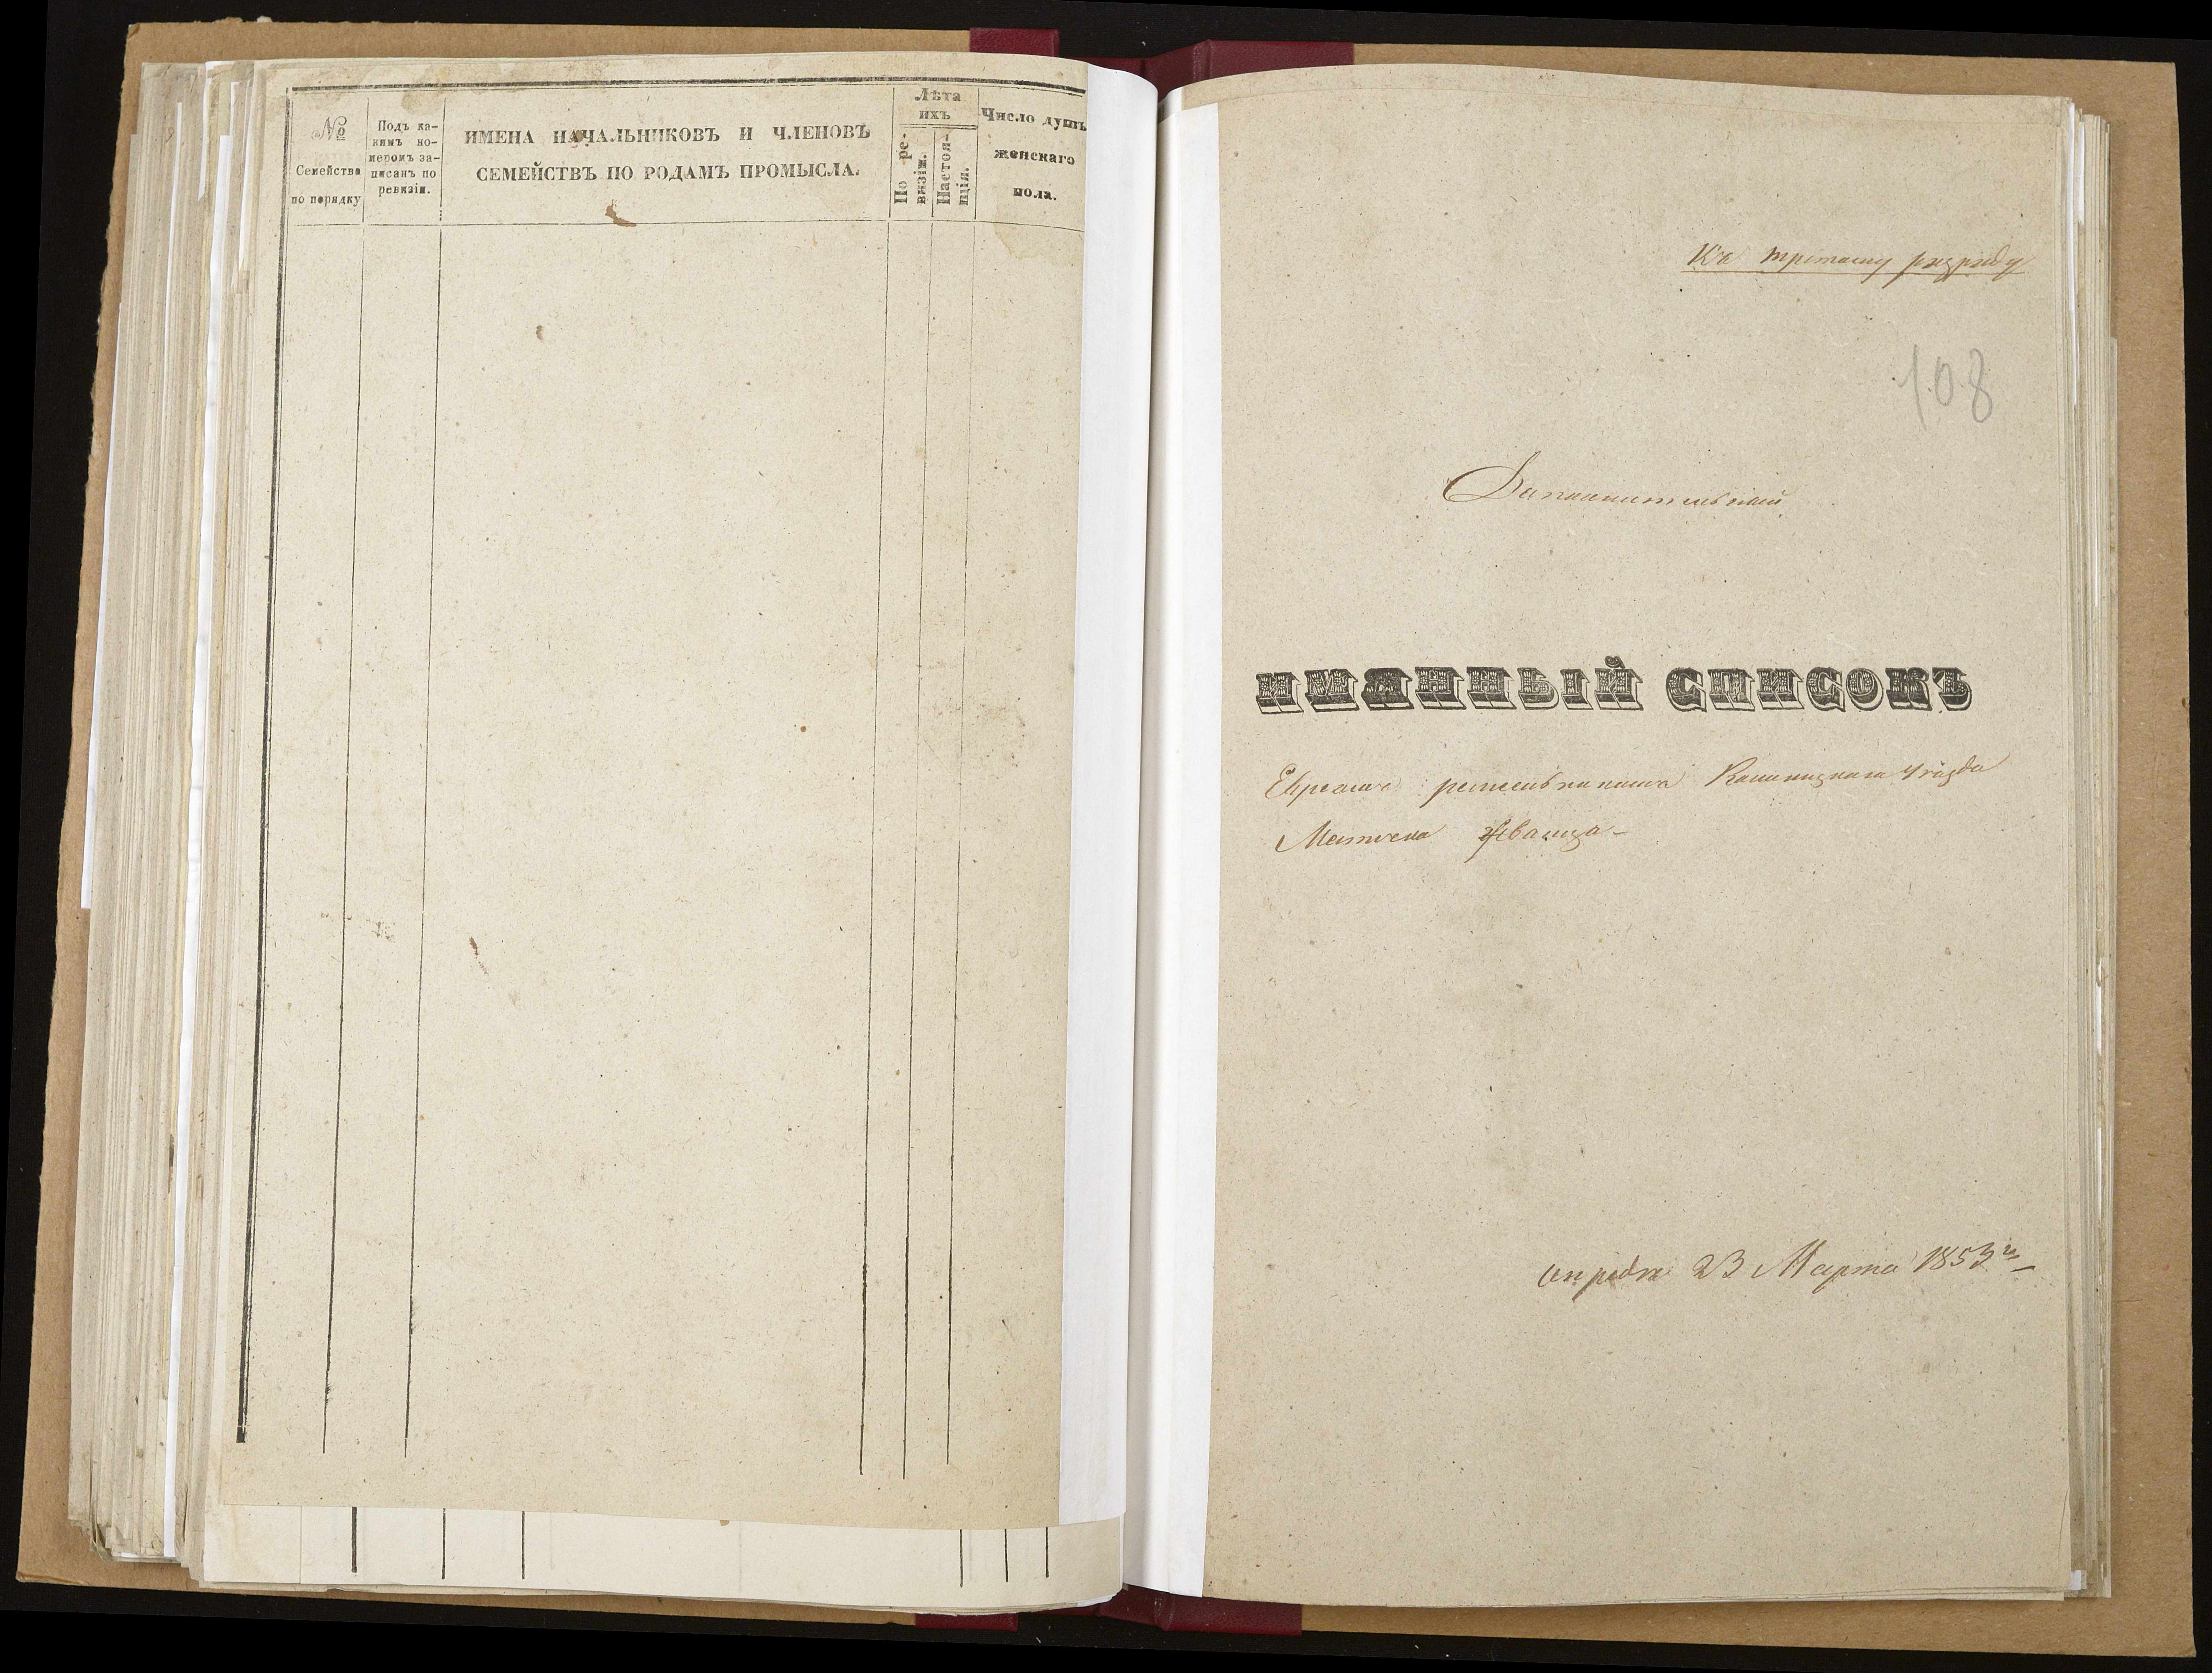 №
Семейства
по порядку
Подъ ка-
кимъ но-
меромъ за-
писанъ по
ревизіи.
ИМЕНА НАЧАЛЬНИКОВЪ И ЧЛЕНОВЪ
СЕМЕЙСТВЪ ПО РОДАМЪ ПРОМЫСЛА.
Лѣта
ихъ
По ре-
визіи.
Настоя-
щія.
Число душъ
женскаго
пола.
Къ третому разряду
108
Дополнительный
ИМЯННЫЙ СПИСОКЪ
Евреямъ ремесленникамъ Каменецкаго уѣзда
Местечка Жванца
23 Марта 1853